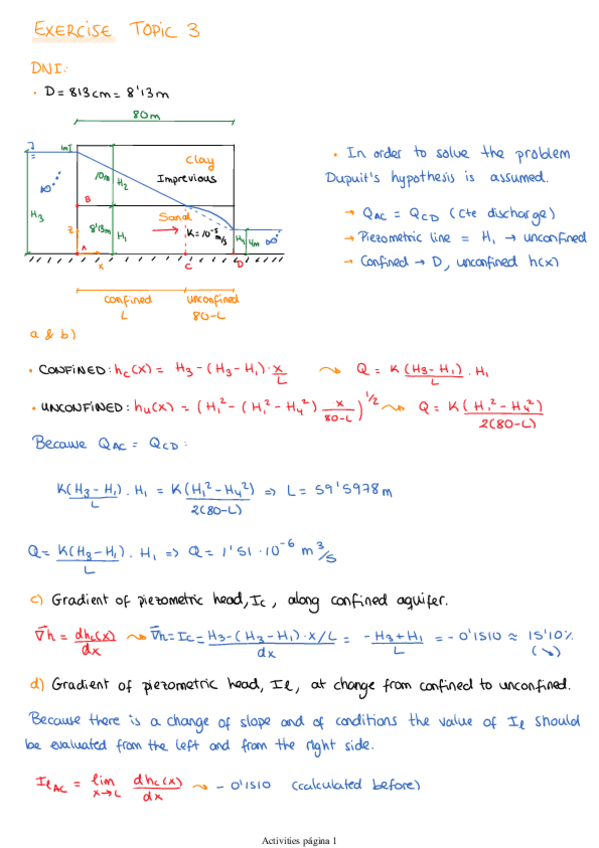 EXERCISE TOPIC 3
DNI:
• D = 813cm = 8'13m
80m
1m
Clay
Impervious
10m
H₂
10
H₃
B
Sand
8'13m
H₁
K = 10⁻⁵ m/s
z
A
x
C
D
H₄
4m
confined
L
unconfined
80-L
• In order to solve the problem
Dupuit's hypothesis is assumed.
→ QAC = QCD (cte discharge)
→ Piezometric line = H₁ → unconfined
→ Confined → D, unconfined h(x)
a & b)
• CONFINED: hc(x) = H₃ - (H₃ - H₁) · x/L ⇝ Q = K (H₃ - H₁)/L · H₁
• UNCONFINED: hu(x) = (H₁² - (H₁² - H₄²) x/(80-L))^1/2 ⇝ Q = K (H₁² - H₄²)/2(80-L)
Because QAC = QCD:
K(H₃ - H₁)/L · H₁ = K(H₁² - H₄²)/2(80-L) ⇒ L = 59'5978m
Q = K(H₃ - H₁)/L · H₁ ⇒ Q = 1'51 · 10⁻⁶ m³/s
c) Gradient of piezometric head, Ic, along confined aquifer.
∇h = dhc(x)/dx ⇝ ∇h = Ic = H₃ - (H₃ - H₁) · x/L / dx = -H₃ + H₁/L = -0'1510 ≈ 15'10% (↘)
d) Gradient of piezometric head, Iℓ, at change from confined to unconfined.
Because there is a change of slope and of conditions the value of Iℓ should
be evaluated from the left and from the right side.
IℓAC = lim x→L dhc(x)/dx ⇝ -0'1510 (calculated before)
Activities página 1